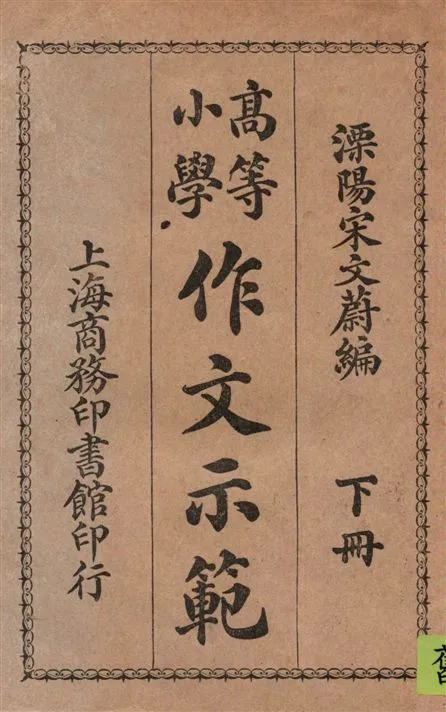 溧陽宋文蔚編
下冊
高等
小學
作文示範
上海商務印書館印行
舊